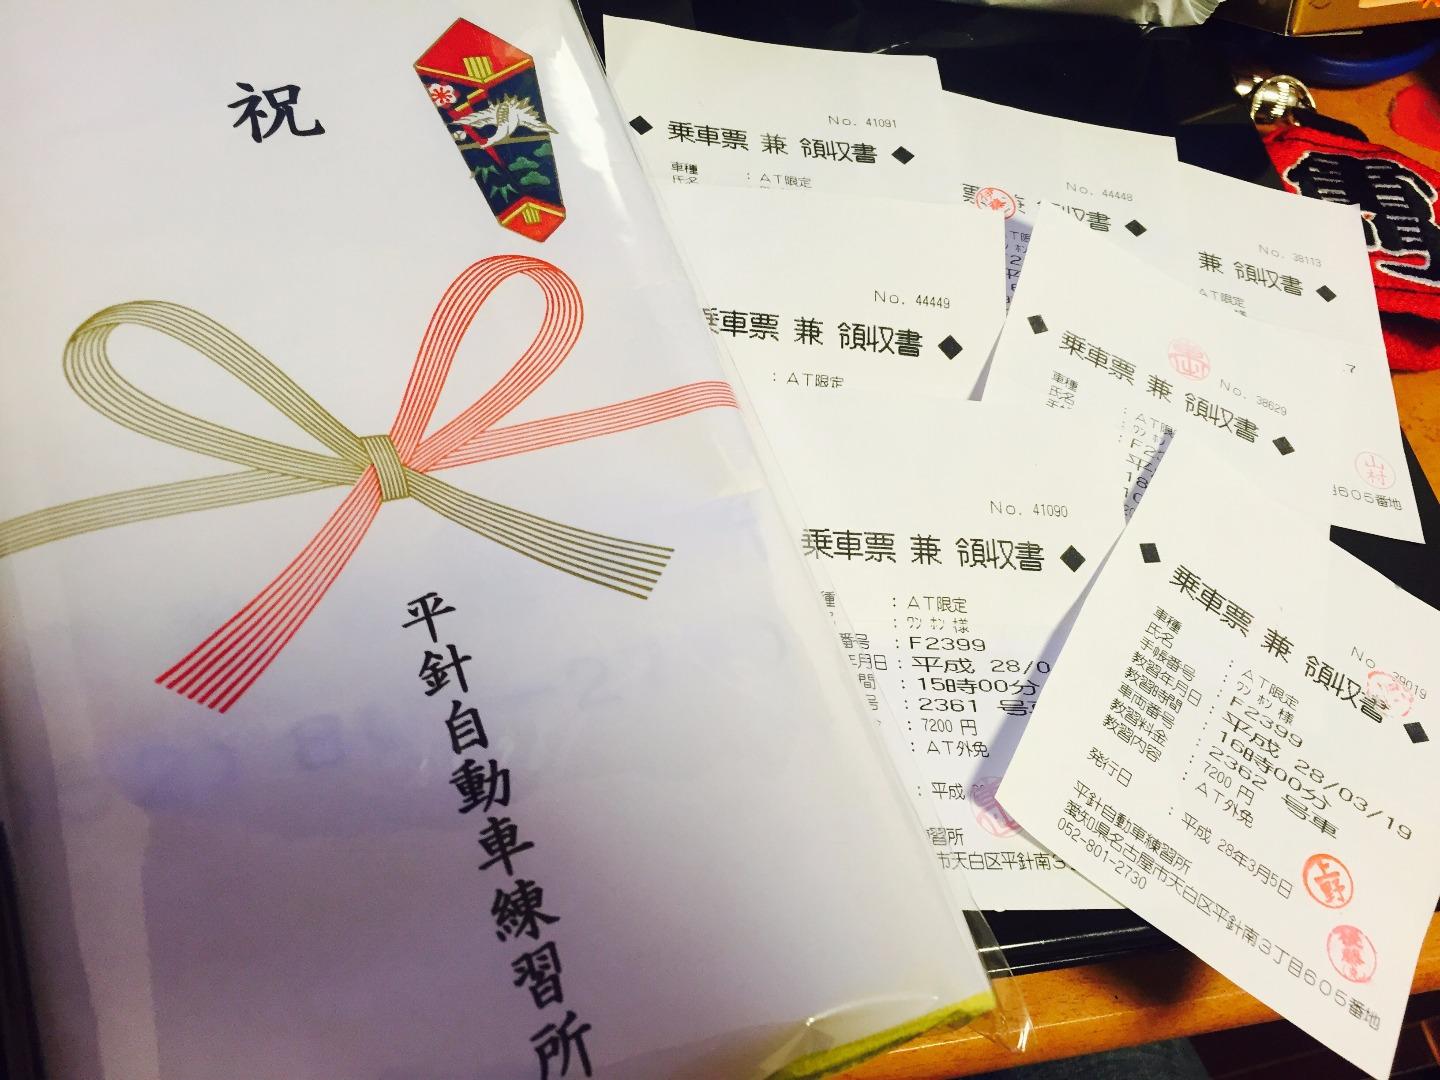 祝
平針自動車練習所
No. 41091
◆ 乗車票 兼 領収書 ◆
車種 : AT限定
氏名
No. 44448
票 兼 領収書 ◆
No. 38113
兼 領収書 ◆
AT限定
No. 44449
乗車票 兼 領収書 ◆
: AT限定
No. 38629
◆ 乗車票 兼 領収書 ◆
車種
氏名
山村
605番地
No. 41090
乗車票 兼 領収書 ◆
種 : AT限定
: ワン ホン 様
番号 : F2399
年月日 : 平成 28/0
間 : 15時00分
号 : 2361 号
: 7200 円
: AT外免
: 平成
習所
市天白区平針南3
No. 39019
◆ 乗車票 兼 領収書 ◆
車種 : AT限定
氏名 : ワン ホン 様
手帳番号 : F2399
教習年月日 : 平成 28/03/19
教習時間 : 16時00分
車両番号 : 2362 号車
教習料金 : 7200 円
教習内容 : AT外免
発行日 : 平成 28年3月5日
平針自動車練習所
愛知県名古屋市天白区平針南3丁目605番地
052-801-2730
上野